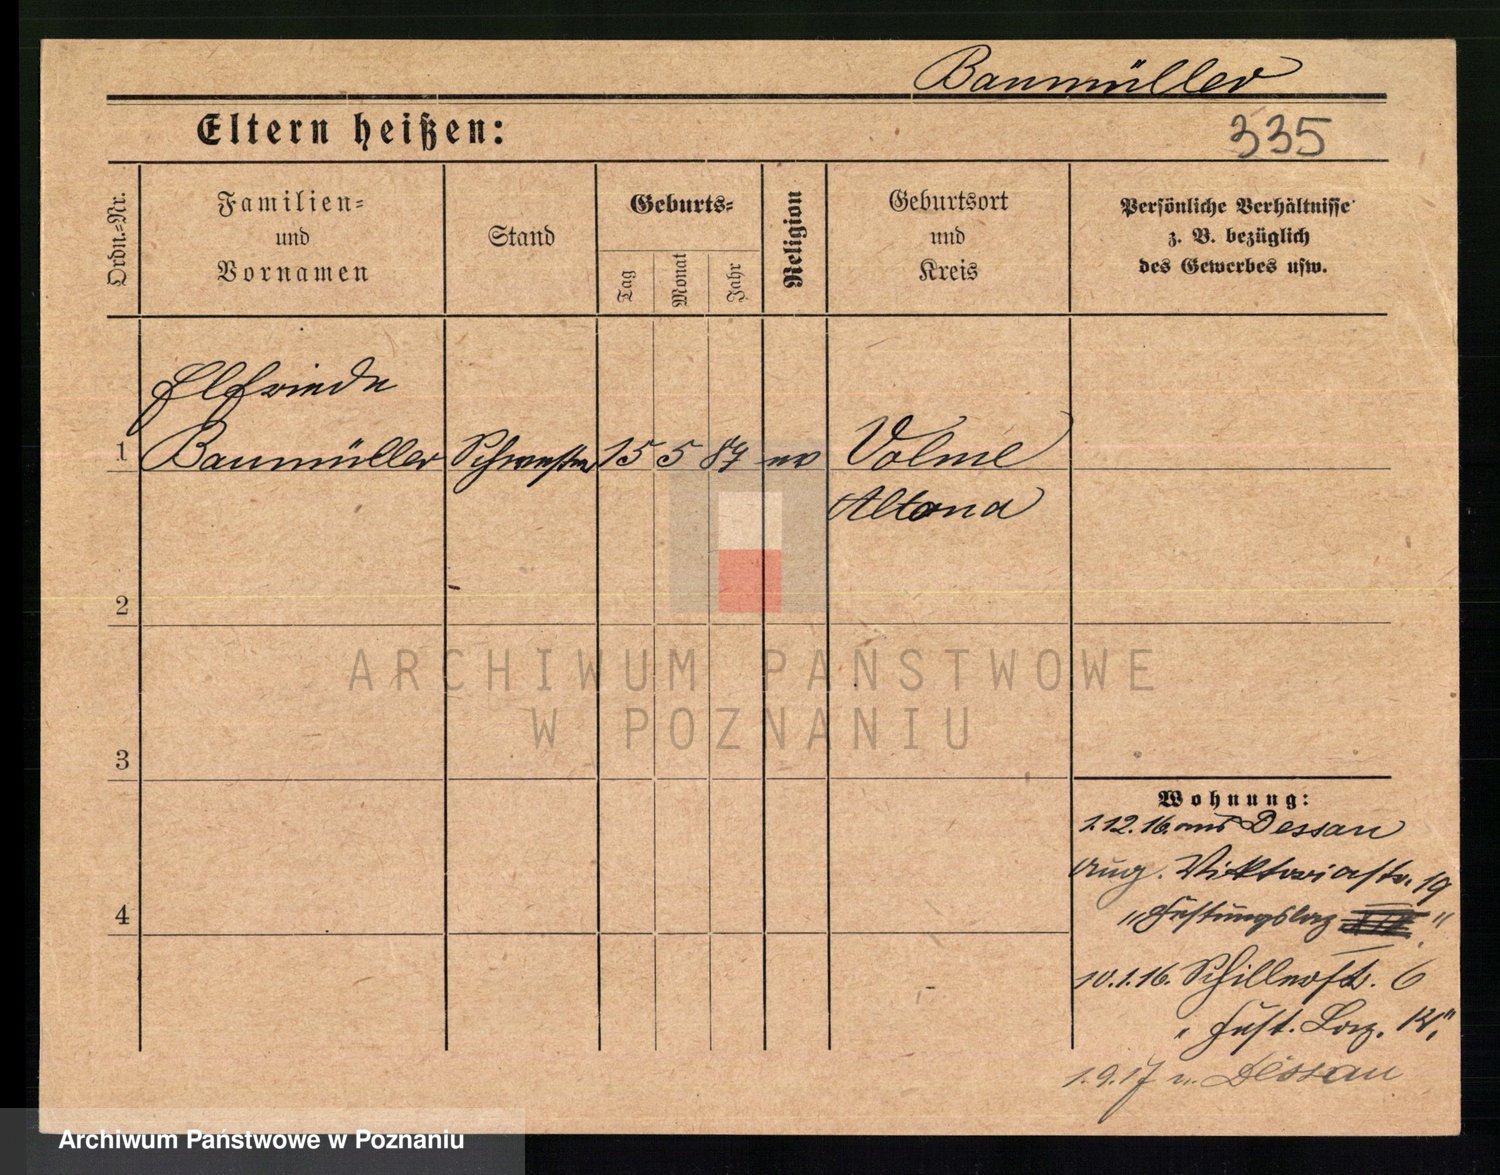 Baumüller
Eltern heißen:
335
Ordn.=Nr.
Familien=
und
Vornamen
Stand
Geburts=
Tag
Monat
Jahr
Religion
Geburtsort
und
Kreis
Persönliche Verhältnisse
z. B. bezüglich
des Gewerbes usw.
Elfriede
1 Baumüller Schwester 15 5 87 ev
Altona
2
ARCHIWUM PAŃSTWOWE
W POZNANIU
3
Wohnung:
1.12.16. aus Dessau
Aug. Viktoriastr. 19
"Festungslaz "
10.1.16. Schillerstr. 6
" Fest. Laz. "
1.9.17 n. Dessau
4
Archiwum Państwowe w Poznaniu